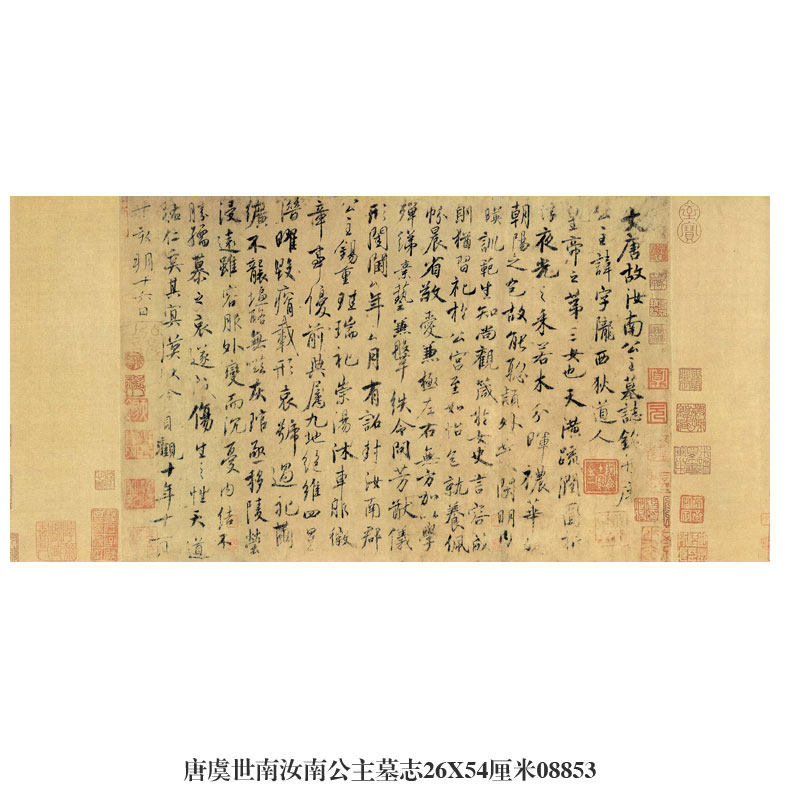 大唐故汝南公主墓誌銘并序
公主諱字隴西狄道人
皇帝之第三女也天潢疏潤圓折
浮夜光之采若木分暉穠華
朝陽之色故能聰穎外發閑明內
暎訓範生知尚觀箴於女史言容成
則猶習礼於公宮至如怡色就養佩
帉晨省敬愛兼極左右無方加以學
殫綈素藝兼鞶紩令問芳猷儀
形閨閫年月有詔封汝南郡
公主錫重珪瑞礼崇湯沐車服徽
章事優前典屬九地絕維四星
潛曜毀瘠載形哀號過礼繭
纊不襲塩酪無嗞灰琯亟移陵塋
浸遠雖容服外變而沉憂內結不
勝孺慕之哀遂成傷生之性天道
祐仁奚其冥漠以今貞觀十年十一月
丁亥朔十六日
唐虞世南汝南公主墓志26X54厘米08853